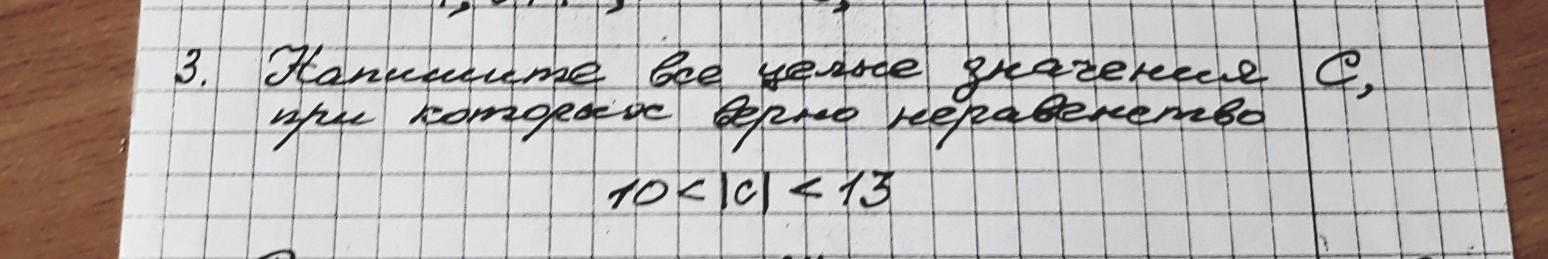 3. Напишите все целые значения С,
при которых верно неравенство
10 < |c| < 13